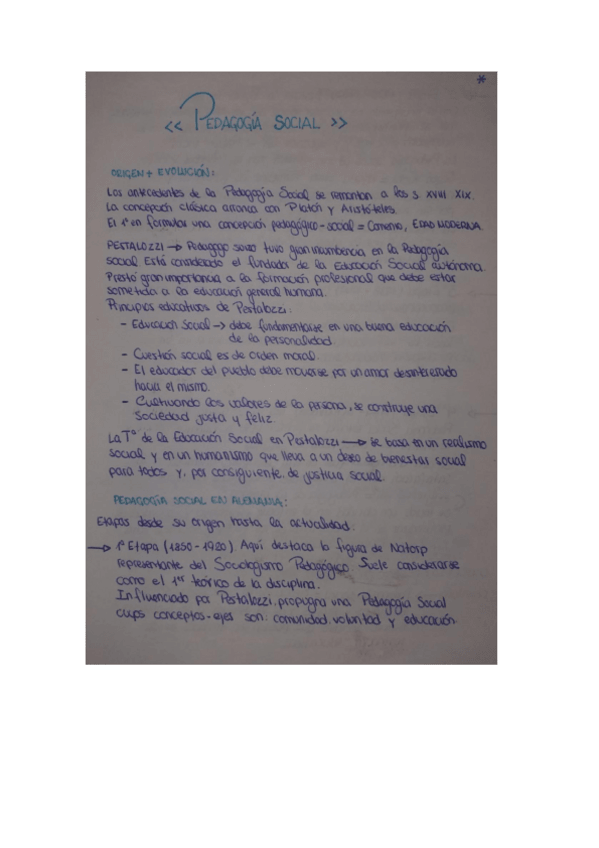 *
<< PEDAGOGÍA SOCIAL >>
ORIGEN + EVOLUCIÓN:
Los antecedentes de la Pedagogía Social se remontan a los s. XVIII XIX.
La concepción clásica arranca con Platón y Aristóteles.
El 1º en formular una concepción pedagógico-social = Comenio, EDAD MODERNA.
PESTALOZZI → Pedagogo suizo tuvo gran incumbencia en la Pedagogía
social. Está considerado el fundador de la Educación Social autónoma.
Prestó gran importancia a la formación profesional que debe estar
sometida a la educación general humana.
Principios educativos de Pestalozzi:
- Educación Social → debe fundamentarse en una buena educación
de la personalidad
- Cuestión social es de orden moral.
- El educador del pueblo debe moverse por un amor desinteresado
hacia el mismo.
- Cultivando los valores de la persona, se construye una
Sociedad justa y feliz.
La Tª de la Educación Social en Pestalozzi → se basa en un realismo
social y en un humanismo que lleva a un deseo de bienestar social
para todos y, por consiguiente, de justicia social.
PEDAGOGÍA SOCIAL EN ALEMANIA:
Etapas desde su origen hasta la actualidad:
→ 1ª Etapa (1850-1920) Aquí destaca la figura de Natorp
representante del Sociologismo Pedagógico. Suele considerarse
como el 1er teórico de la disciplina.
Influenciado por Pestalozzi, propugna una Pedagogía Social
cuyos conceptos-ejes son: comunidad, voluntad y educación.